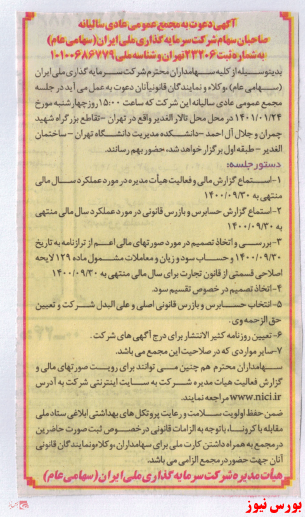 آگهی دعوت به مجمع عمومی عادی سالیانه
صاحبان سهام شرکت سرمایه گذاری ملی ایران (سهامی عام)
به شماره ثبت ۲۳۲۰۶ تهران و شناسه ملی ۱۰۱۰۰۶۸۶۷۷۹
بدینوسیله از کلیه سهامداران محترم شرکت سرمایه گذاری ملی ایران
(سهامی عام)، وکلاء و نمایندگان قانونی آنان دعوت به عمل می آید در جلسه
مجمع عمومی عادی سالیانه این شرکت که ساعت ۱۵:۰۰ روز چهارشنبه مورخ
۱۴۰۱/۰۱/۲۴ در محل تالار الغدیر واقع در تهران - تقاطع بزرگراه شهید
چمران و جلال آل احمد - دانشکده مدیریت دانشگاه تهران - ساختمان
الغدیر - طبقه اول برگزار خواهد شد، حضور بهم رسانند.
دستور جلسه:
۱- استماع گزارش مالی و فعالیت هیأت مدیره در مورد عملکرد سال مالی
منتهی به ۱۴۰۰/۰۹/۳۰
۲- استماع گزارش حسابرس و بازرس قانونی در مورد عملکرد سال مالی منتهی
به ۱۴۰۰/۰۹/۳۰
۳- بررسی و اتخاذ تصمیم در مورد صورتهای مالی اعم از ترازنامه به تاریخ
۱۴۰۰/۰۹/۳۰ و حساب سود و زیان و معاملات مشمول ماده ۱۲۹ لایحه
اصلاحی قسمتی از قانون تجارت برای سال مالی منتهی به ۱۴۰۰/۰۹/۳۰
۴- اتخاذ تصمیم در خصوص تقسیم سود.
۵- انتخاب حسابرس و بازرس قانونی اصلی و علی البدل شرکت و تعیین
حق الزحمه وی.
۶- تعیین روزنامه کثیر الانتشار برای درج آگهی های شرکت.
۷- سایر مواردی که در صلاحیت این مجمع می باشد.
سهامداران محترم هم چنین می توانند برای رویت صورتهای مالی و
گزارش فعالیت هیات مدیره شرکت به سایت اینترنتی شرکت به آدرس
www.nici.ir مراجعه نمایند.
ضمن حفظ اولویت سلامت و رعایت پروتکل های بهداشتی ابلاغی ستاد ملی
مقابله با کرونا، با توجه به الزامات قانونی در خصوص ثبت صورت حاضرین
در مجمع به همراه داشتن کارت ملی برای سهامداران، وکلاء و نمایندگان قانونی
آنان جهت حضور در مجمع الزامی می باشد.
هیأت مدیره شرکت سرمایه گذاری ملی ایران (سهامی عام)
بورس نیوز